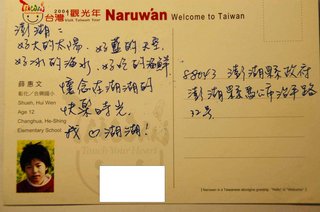 2004
台灣觀光年
Visit Taiwan Year
Naruwan Welcome to Taiwan
澎湖:
好大的太陽, 好藍的天空
好冰的海水, 好吃的海鮮
懷念在澎湖的
快樂時光,
我 湖湖!
薛惠文
彰化/合興國小
Shueh, Hui Wen
Age 12
Changhua, He-Shing
Elementary School
Touch Your Heart
88043 澎湖縣政府
澎湖縣馬公市治平路
32号
( Naruwan is a Taiwanese aborigine greeting, "Hello" is "Welcome" )